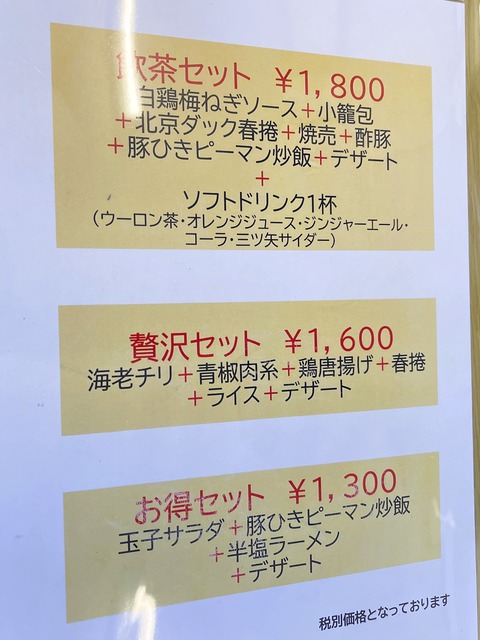 飲茶セット ￥1,800
白鶏梅ねぎソース＋小籠包
＋北京ダック春捲＋焼売＋酢豚
＋豚ひきピーマン炒飯＋デザート
＋
ソフトドリンク1杯
（ウーロン茶・オレンジジュース・ジンジャーエール・
コーラ・三ツ矢サイダー）
贅沢セット ￥1,600
海老チリ＋青椒肉系＋鶏唐揚げ＋春捲
＋ライス＋デザート
お得セット ￥1,300
玉子サラダ＋豚ひきピーマン炒飯
＋半塩ラーメン
＋デザート
税別価格となっております